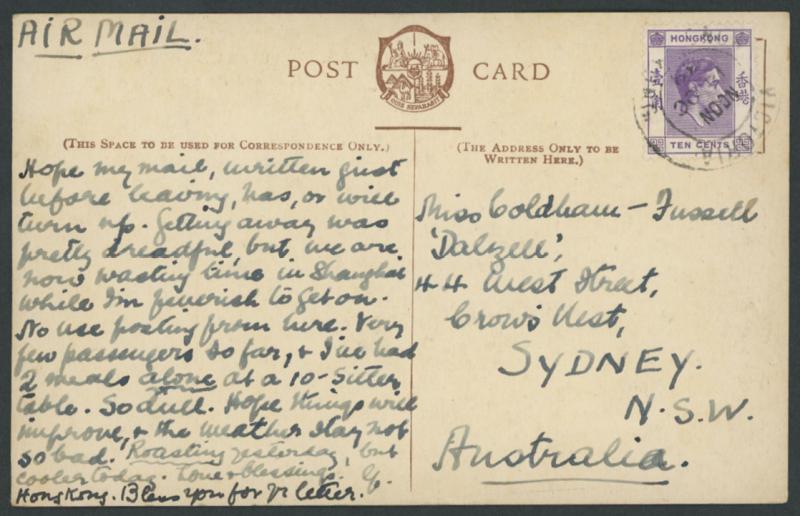 AIR MAIL.
POST CARD
DUIS SEPARABIT
HONGKONG
香港
TEN CENTS
VICTORIA
NOON
(THIS SPACE TO BE USED FOR CORRESPONDENCE ONLY.)
Hope my mail, written just
before leaving, has, or will
turn up. Getting away was
pretty dreadful, but we are
now wasting time in Shanghai
while I'm feverish to get on.
No use posting from here. Very
few passengers so far, & I've had
2 meals alone at a 10-sitter
table. So dull. Hope things will
improve, & the weather stay not
so bad. Roasting yesterday, but
cooler today. Love & blessings. Y.
Hong Kong. Bless you for yr letter.
(THE ADDRESS ONLY TO BE
WRITTEN HERE.)
Miss Coldham-Fussell
'Dalzell',
44 West Street,
Crow's Nest,
SYDNEY.
N.S.W.
Australia.